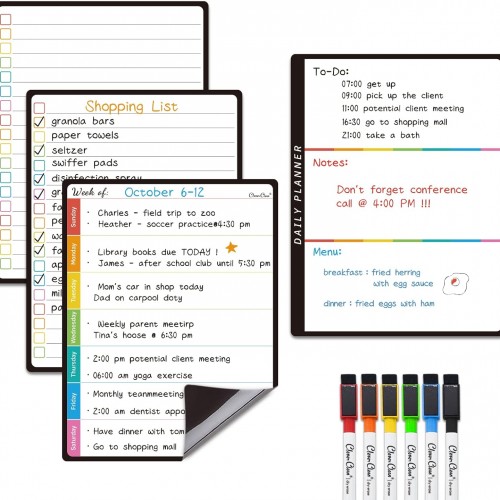 Shopping List
granola bars
paper towels
seltzer
swiffer pads
disinfection spray
Week of: October 6-12
Sunday
· Charles - field trip to zoo
· Heather - soccer practice#4:30 pm
Monday
· Library books due TODAY !
· James - after school club until 5:30 pm
Tuesday
Mom's car in shop today
Dad on carpool doty
Wednesday
· Weekly parent meetirp
Tina's hoose # 6:30 pm
Thursday
· 2:00 pm potential client meeting
· 06:00 am yoga exercise
Friday
· Monthly teammeeting
· 2:00 am dentist appo
Saturday
· Have dinner with tom
· Go to shopping mall
DAILY PLANNER
To-Do:
07:00 get up
09:00 pick up the client
11:00 potential client meeting
16:30 go to shopping mall
21:00 take a bath
Notes:
Don't forget conference
call @ 4:00 PM !!!
Menu:
breakfast : fried herring
with egg sauce
dinner : fried eggs with ham